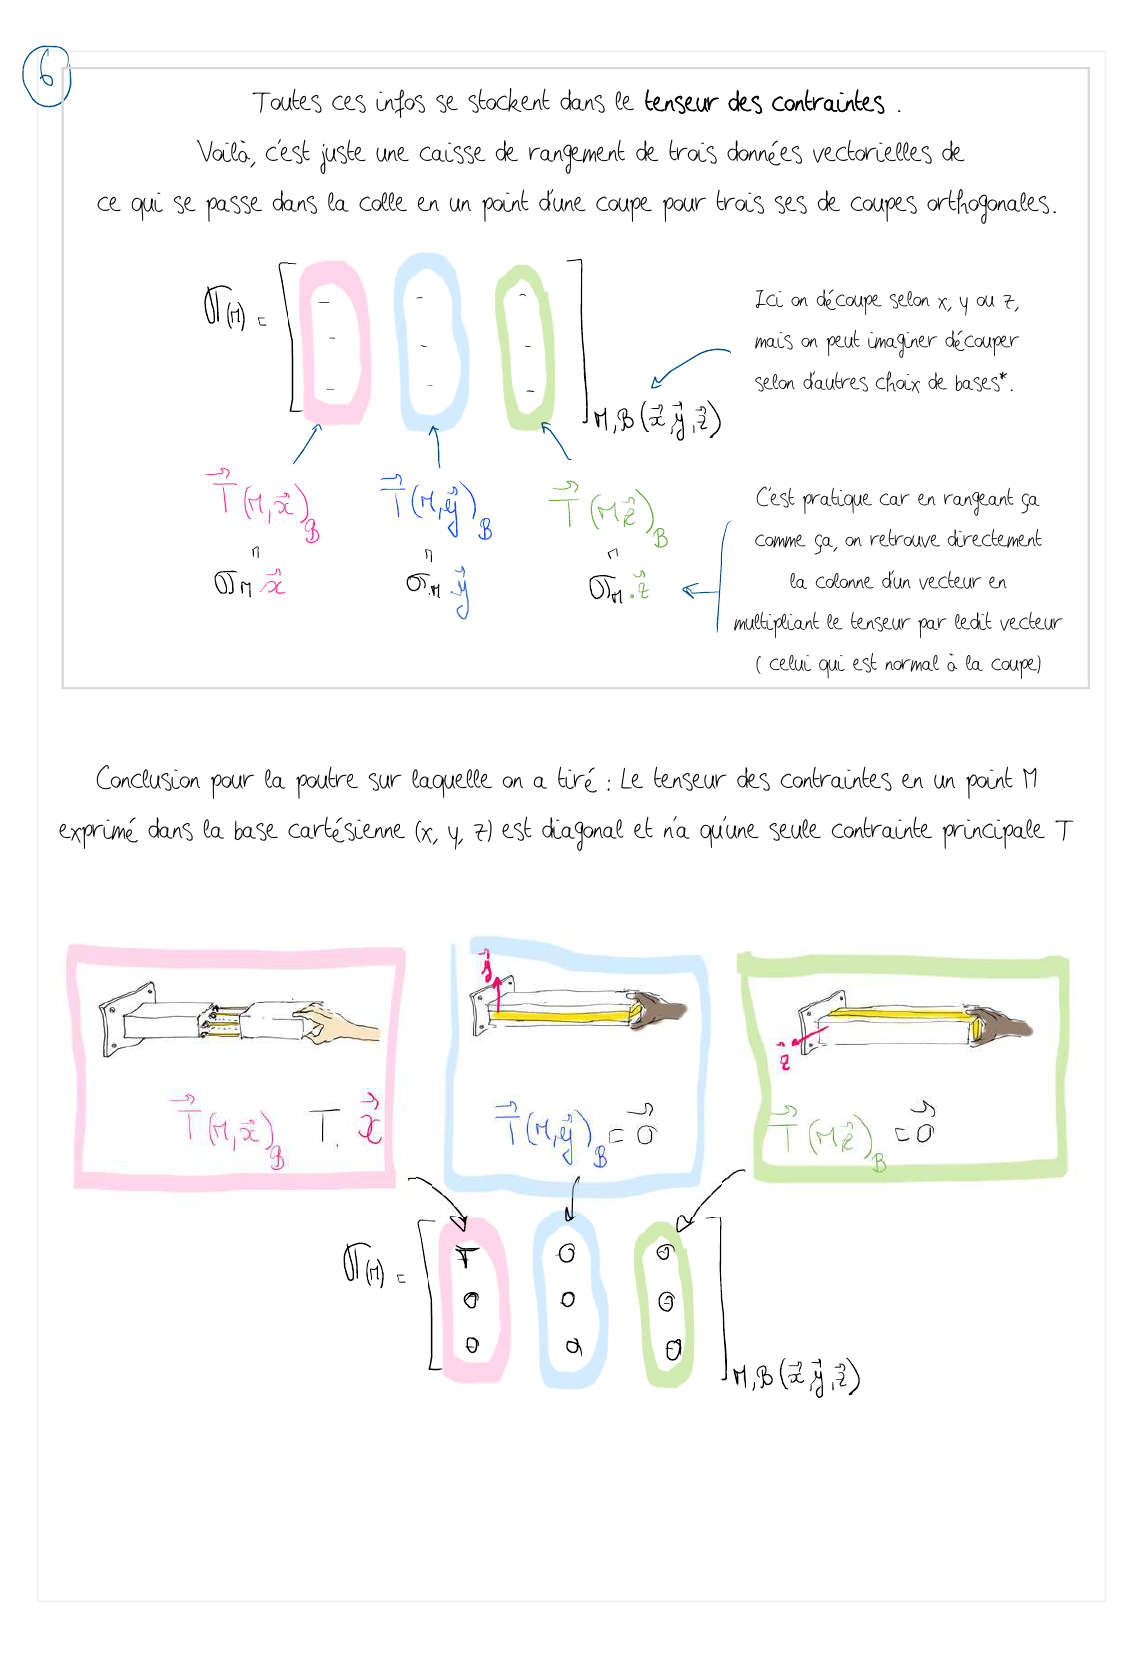 6
Toutes ces infos se stockent dans le tenseur des contraintes .
Voilà, c'est juste une caisse de rangement de trois données vectorielles de
ce qui se passe dans la colle en un point d'une coupe pour trois ses de coupes orthogonales.
σ(M) = [ - - - ; - - - ; - - - ] M,B(x⃗,y⃗,z⃗)
Ici on découpe selon x, y ou z,
mais on peut imaginer découper
selon d'autres choix de bases*.
T⃗(M,x⃗)B T⃗(M,y⃗)B T⃗(M z⃗)B
= = =
σM x⃗ σM.y⃗ σM.z⃗
C'est pratique car en rangeant ça
comme ça, on retrouve directement
la colonne d'un vecteur en
multipliant le tenseur par ledit vecteur
( celui qui est normal à la coupe)
Conclusion pour la poutre sur laquelle on a tiré : Le tenseur des contraintes en un point M
exprimé dans la base cartésienne (x, y, z) est diagonal et n'a qu'une seule contrainte principale T
y⃗
z⃗
T⃗(M,x⃗)B T. x⃗
T⃗(M,y⃗)B = 0⃗
T⃗(M z⃗)B = 0⃗
σ(M) = [ T 0 0 ; 0 0 0 ; 0 0 0 ] M,B(x⃗,y⃗,z⃗)